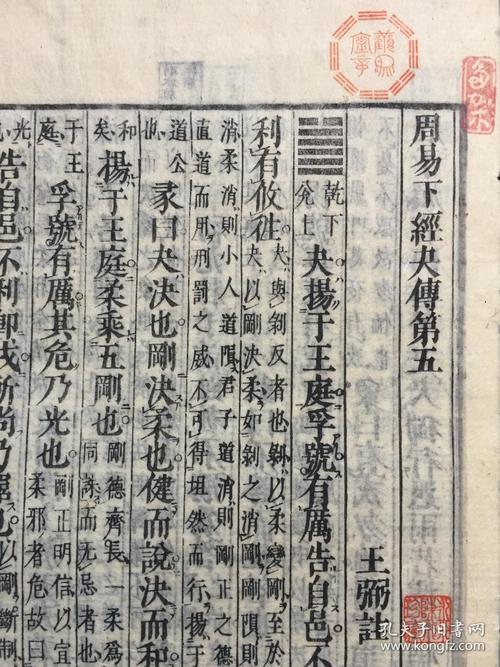 周易下經夬傳第五
王弼註
乾下
兌上
夬揚于王庭孚號有厲告自邑不
利有攸往
夬與剝反者也剝以柔變剛至於
夬以剛決柔如剝之消剛剛隕
消柔消則小人道隕君子道消則剛正之德
直道而用刑罰之威不可得坦然而行揚于
道公
也
彖曰夬決也剛決柔也健而說決而和
和
矣
揚于王庭柔乘五剛也
剛德齊長一柔為
同誅而無忌者也
于王
庭
孚號有厲其危乃光也
剛正明信以宣
柔邪者危故曰
光
告自邑不利即戎所尚乃窮也
以剛斷制
孔夫子旧书网